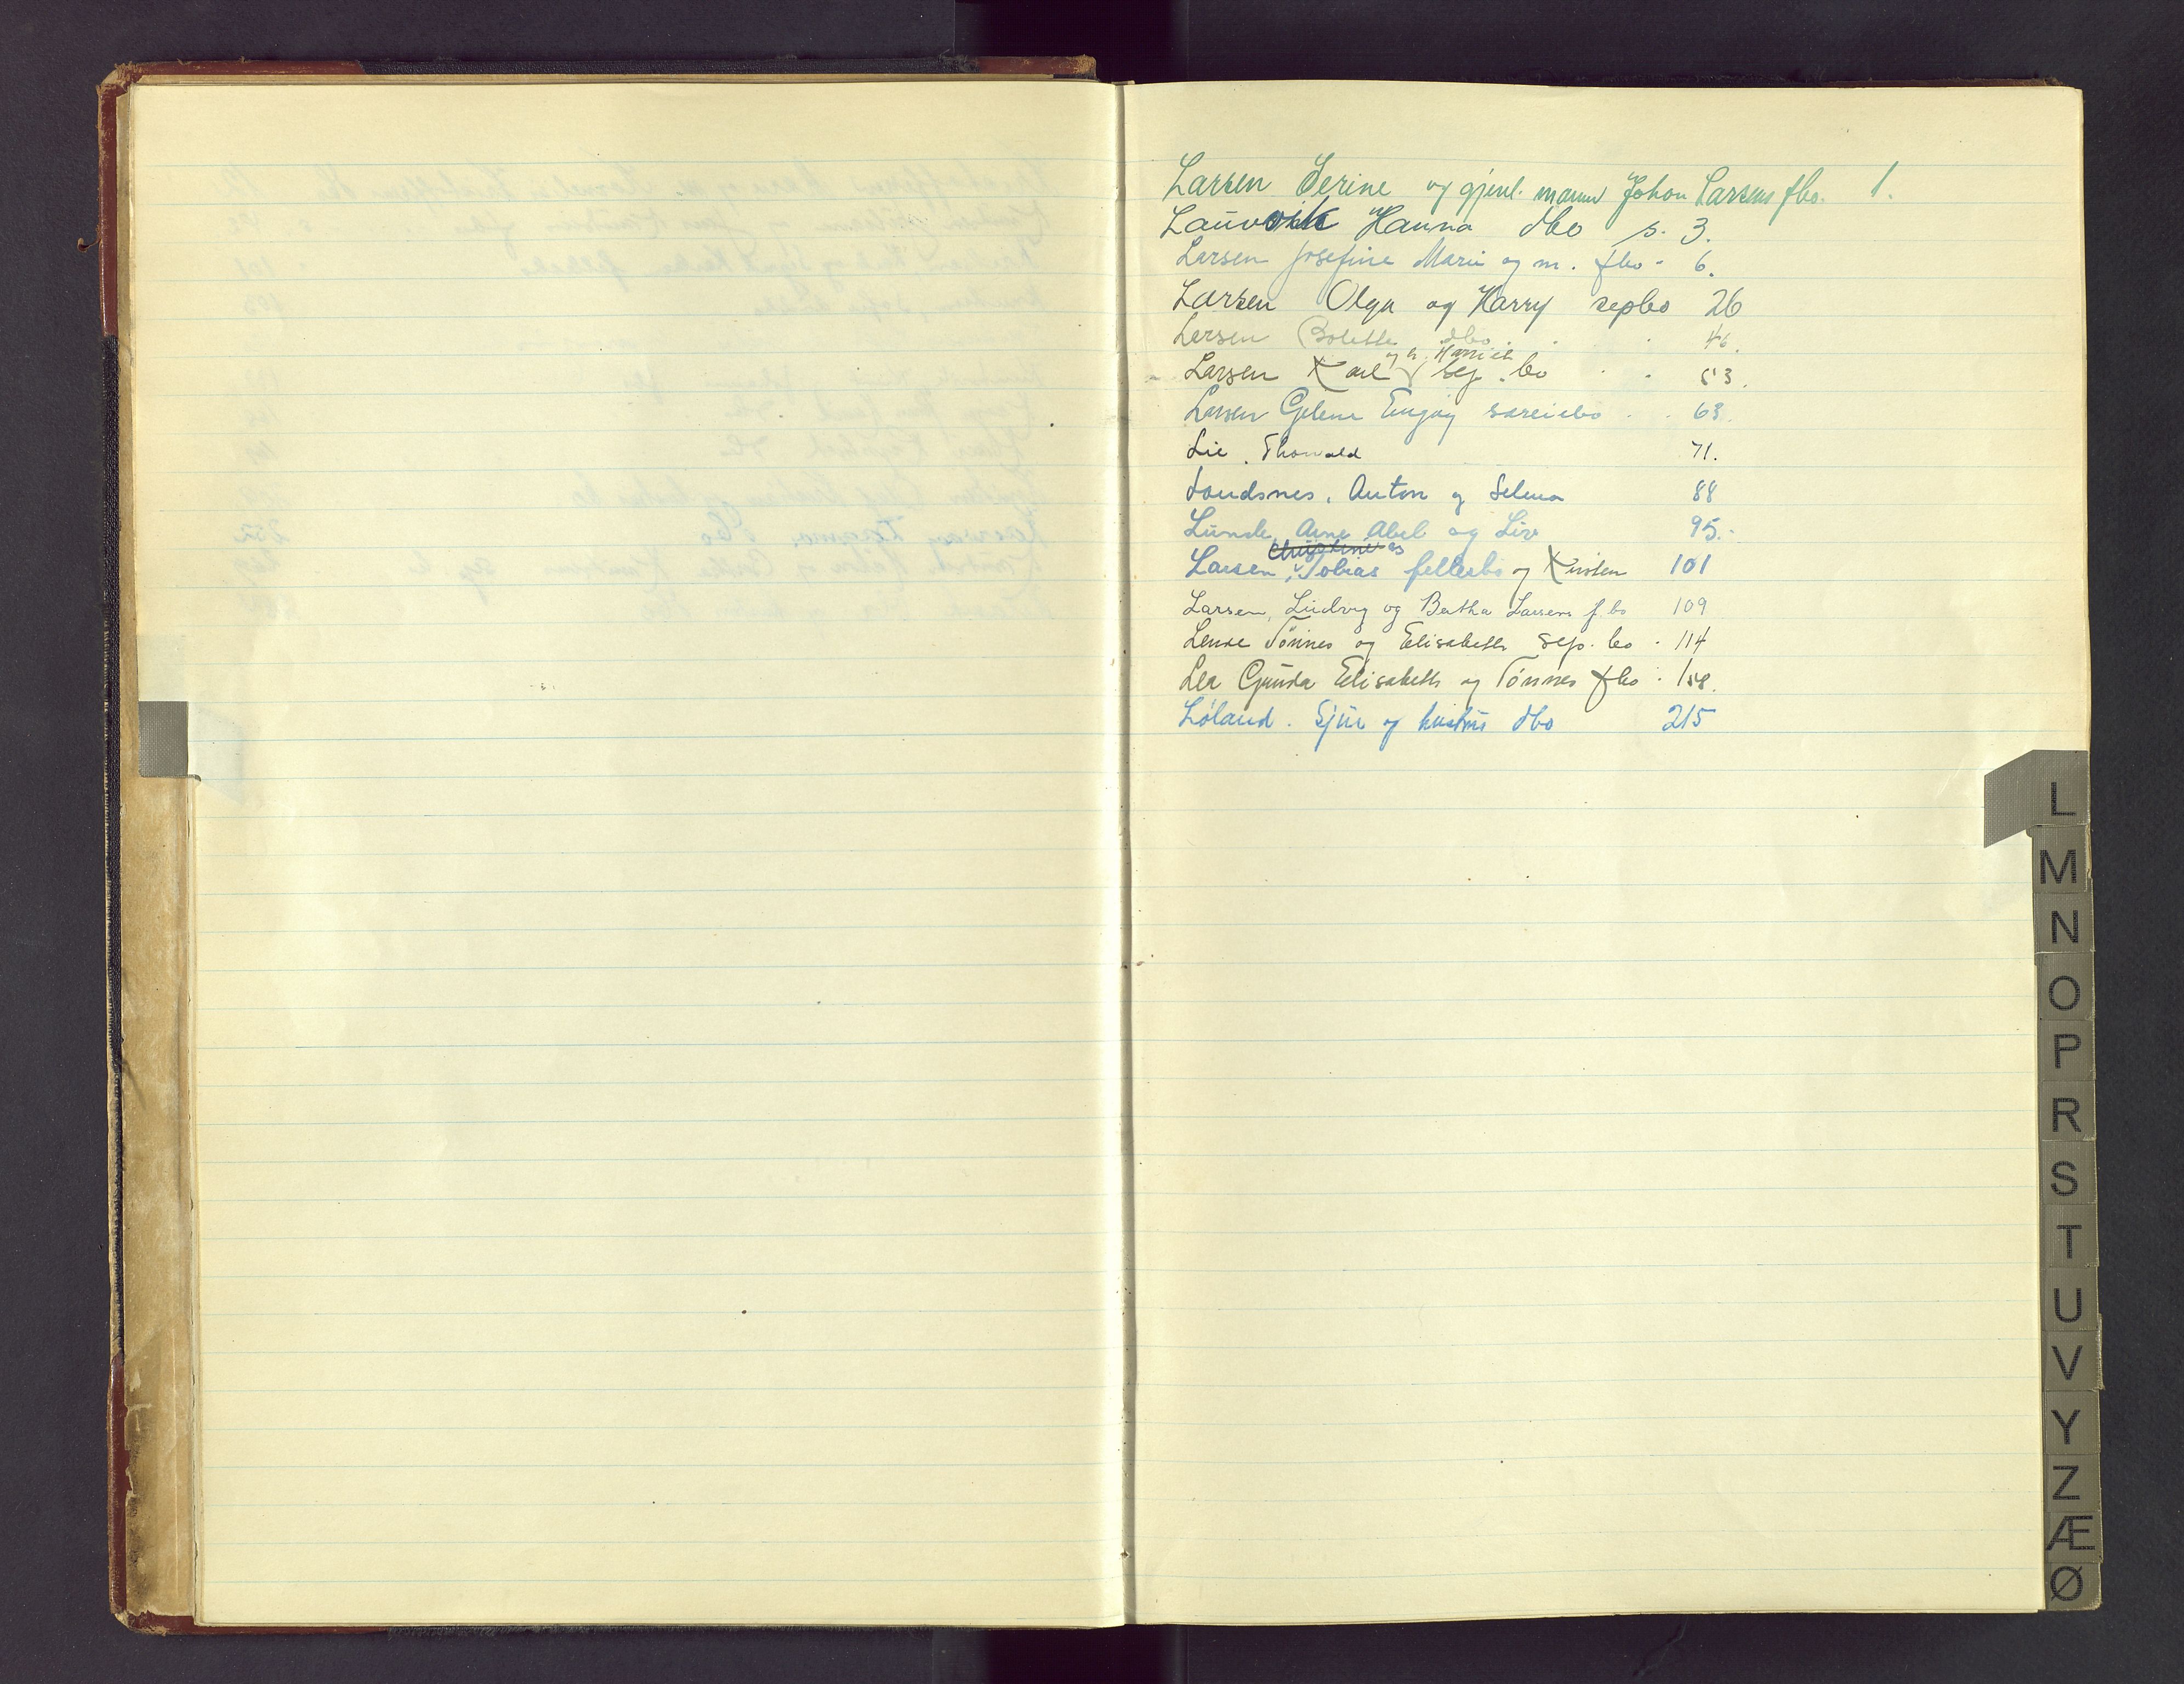 Larsen Serine og gjenl. mann Johan Larsens fbo. 1.
Lauvvik Hanna dbo s. 3.
Larsen Josefine Marie og m. fbo - 6.
Larsen Olga og Harry sepbo 26
Larsen Bolette dbo . . . 46.
og h. Harriet
Larsen Karl sep. bo . . 53.
Larsen Gelene Engøy særeiebo . . 63.
Lie. Thorvald 71.
Landsnes, Anton og Selma 88
Lunde, Arne Abel og Liv 95.-
Christine og
Larsen, Tobias fellesbo og Kirsten 101
Larsen, Ludvig og Bertha Larsens f.bo 109
Lende Tønnes og Elisabeth sep. bo - 114
Lea Gunda Elisabeth og Tønnes fbo - 158.
Løland. Sjur og hustrus dbo 215
L
M
N
O
P
R
S
T
U
V
Y
Z
Æ
Ø